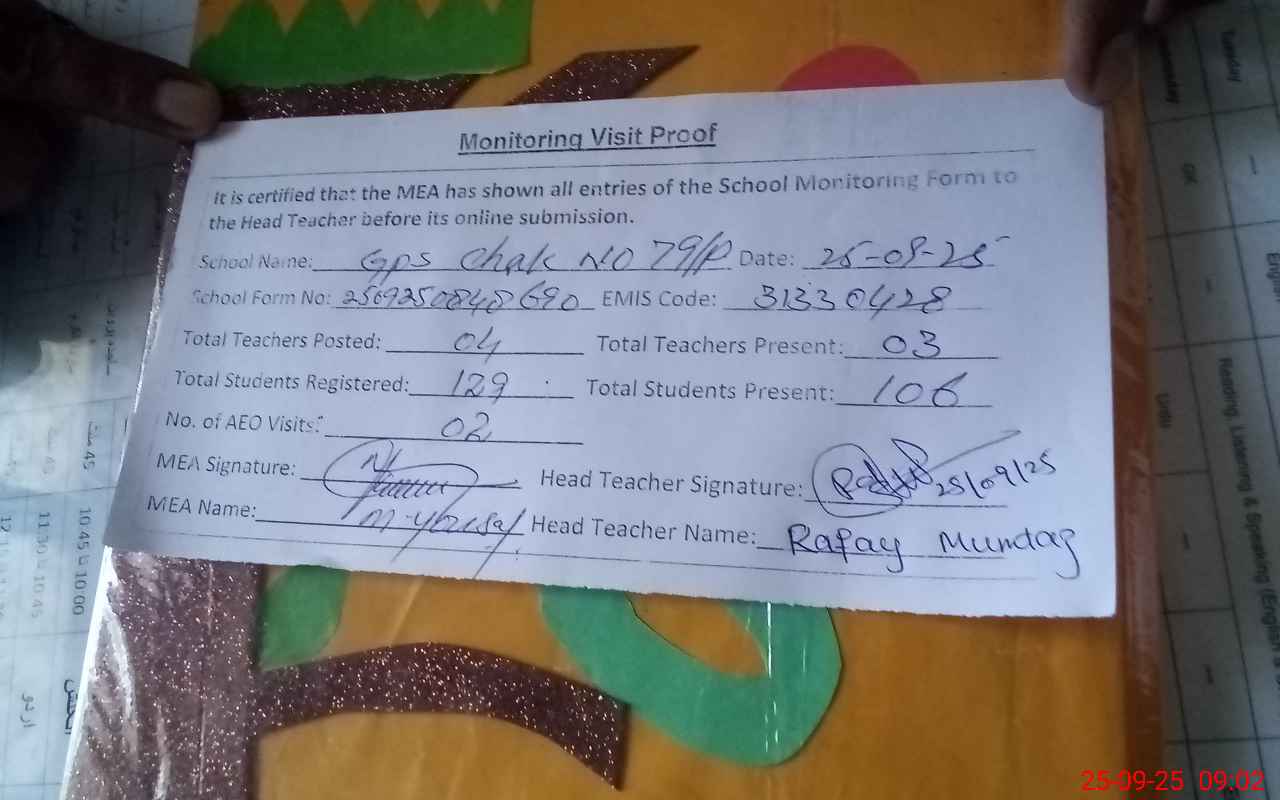 Monitoring Visit Proof
It is certified that the MEA has shown all entries of the School Monitoring Form to
the Head Teacher before its online submission.
School Name: GPS Chak NO 79/P Date: 25-09-25
School Form No: 2509250848690 EMIS Code: 31330428
Total Teachers Posted: 04 Total Teachers Present: 03
Total Students Registered: 129 Total Students Present: 106
No. of AEO Visits: 02
MEA Signature: Head Teacher Signature: 25/09/25
MEA Name: M-Yousaf Head Teacher Name: Rafay Mumdaz
Tuesday
OK
English
Urdu
Reading, Listening & Speaking (English &
10:45 تا 10:00
11:30 تا 10:45
اردو
25-09-25 09:02